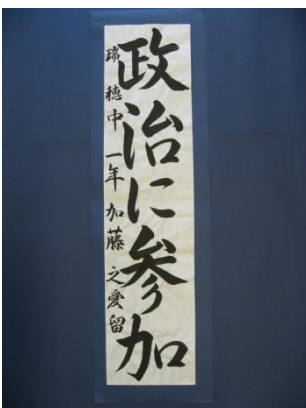 政治に参加
瑞穂中一年加藤之愛留